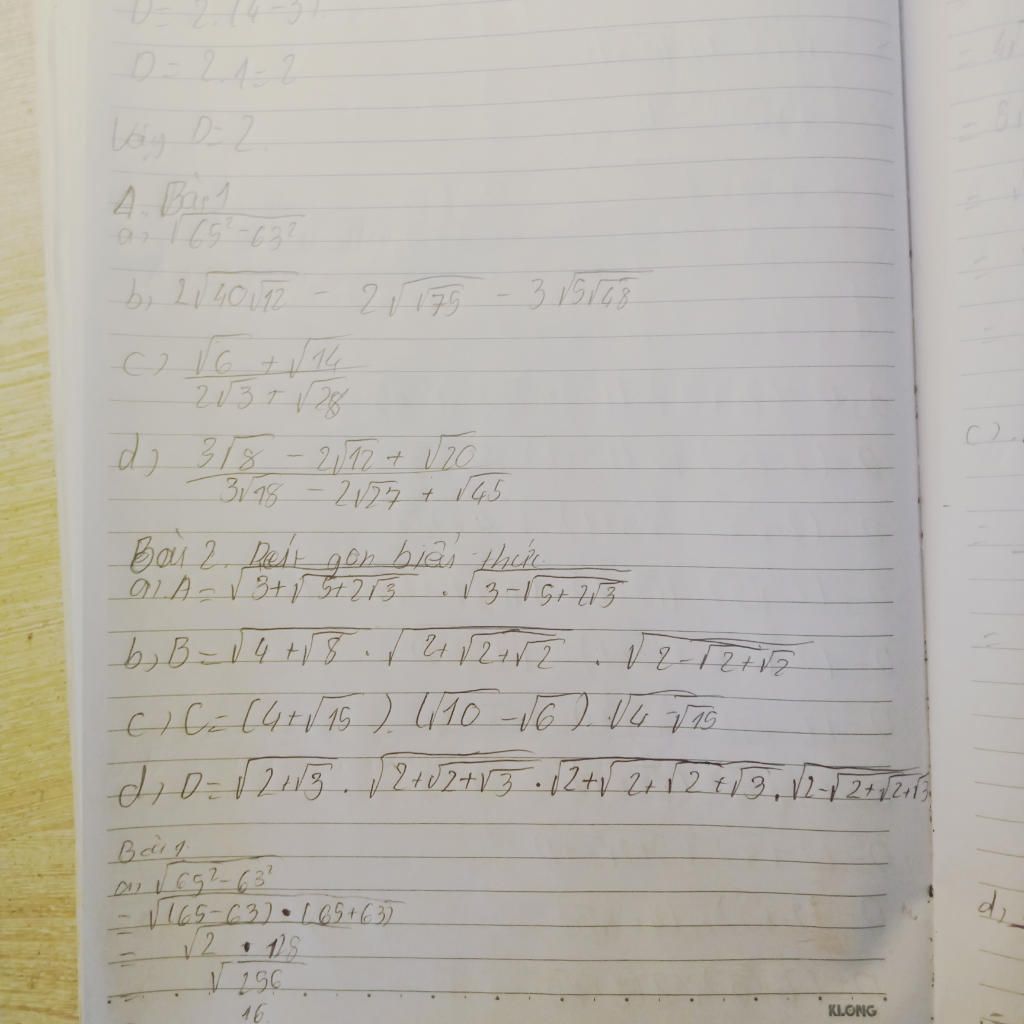 D = 2.(4-3).
D = 2.1 = 2
Vậy D = 2.
A. Bài 1
a, √(65² - 63²)
b, 2√(40√12) - 2√(√75) - 3√(5√48)
c) (√6 + √14)/(2√3 + √28)
d) (3√8 - 2√12 + √20)/(3√18 - 2√27 + √45)
Bài 2. Rút gọn biểu thức
a, A = √(3+√(5+2√3)) . √(3-√(5+2√3))
b, B = √(4+√8) . √(2+√(2+√2)) . √(2-√(2+√2))
c) C = (4+√15).(√10-√6).√(4-√15)
d, D = √(2+√3) . √(2+√(2+√3)) . √(2+√(2+√(2+√3))) . √(2-√(2+√(2+√3)))
Bài 1
a, √(65² - 63²)
= √((65-63).(65+63))
= √(2 . 128)
√256
16
KLONG
c)
d,